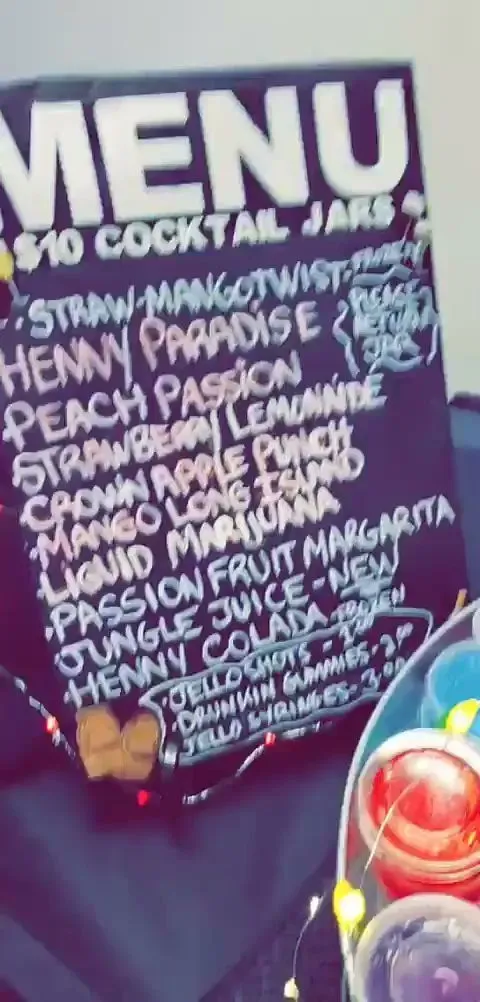 MENU
$10 COCKTAIL JARS
STRAW-MANGOTWIST-FROZEN
HENNY PARADISE
{PLEASE RETURN JAR}
PEACH PASSION
STRAWBERRY LEMONADE
CROWN APPLE PUNCH
MANGO LONG ISLAND
LIQUID MARIJUANA
PASSION FRUIT MARGARITA
JUNGLE JUICE - NEW
HENNY COLADA FROZEN
JELLO SHOTS -
DRUNKIN GUMMIES - 2.00
JELLO SYRINGES - 3.00